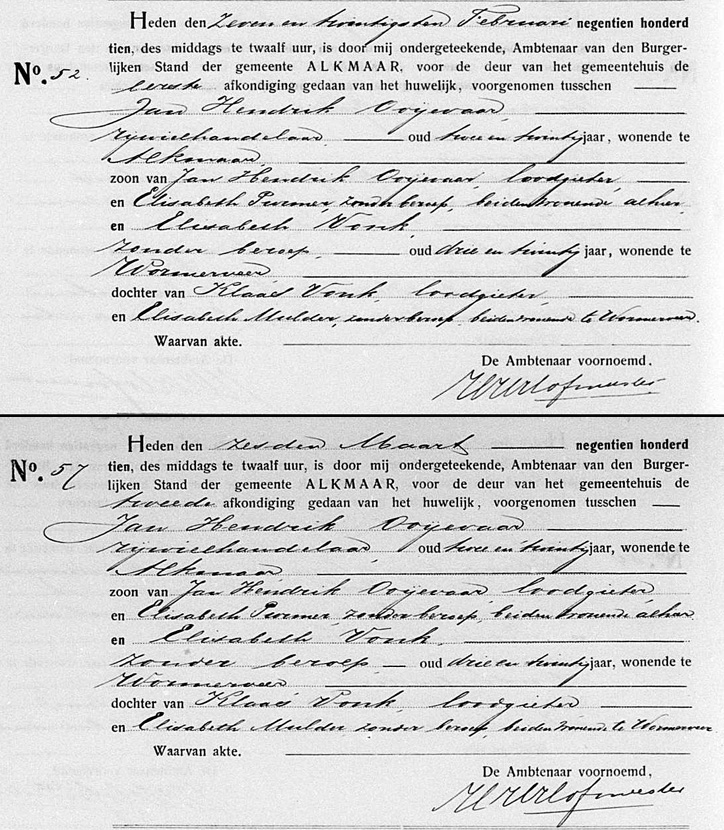 Heden den Zeven en twintigsten Februari negentien honderd
tien, des middags te twaalf uur, is door mij ondergeteekende, Ambtenaar van den Burger-
No. 52. lijken Stand der gemeente ALKMAAR, voor de deur van het gemeentehuis de
eerste afkondiging gedaan van het huwelijk, voorgenomen tusschen
Jan Hendrik Ooijevaar
rijwielhandelaar, oud twee en twintig jaar, wonende te
Alkmaar,
zoon van Jan Hendrik Ooijevaar, loodgieter,
en Elisabeth Purmer, zonder beroep, beiden wonende alhier,
en Elisabeth Vonk,
zonder beroep, oud drie en twintig jaar, wonende te
Wormerveer,
dochter van Klaas Vonk, loodgieter,
en Elisabeth Mulder, zonder beroep, beiden wonende te Wormerveer.
Waarvan akte.
De Ambtenaar voornoemd.
Heden den zesden Maart negentien honderd
No. 57 tien, des middags te twaalf uur, is door mij ondergeteekende, Ambtenaar van den Burger-
lijken Stand der gemeente ALKMAAR, voor de deur van het gemeentehuis de
tweede afkondiging gedaan van het huwelijk, voorgenomen tusschen
Jan Hendrik Ooijevaar
rijwielhandelaar, oud twee en twintig jaar, wonende te
Alkmaar,
zoon van Jan Hendrik Ooijevaar loodgieter
en Elisabeth Purmer zonder beroep, beiden wonende alhier
en Elisabeth Vonk,
zonder beroep, oud drie en twintig jaar, wonende te
Wormerveer
dochter van Klaas Vonk, loodgieter
en Elisabeth Mulder zonder beroep, beiden wonende te Wormerveer
Waarvan akte.
De Ambtenaar voornoemd,